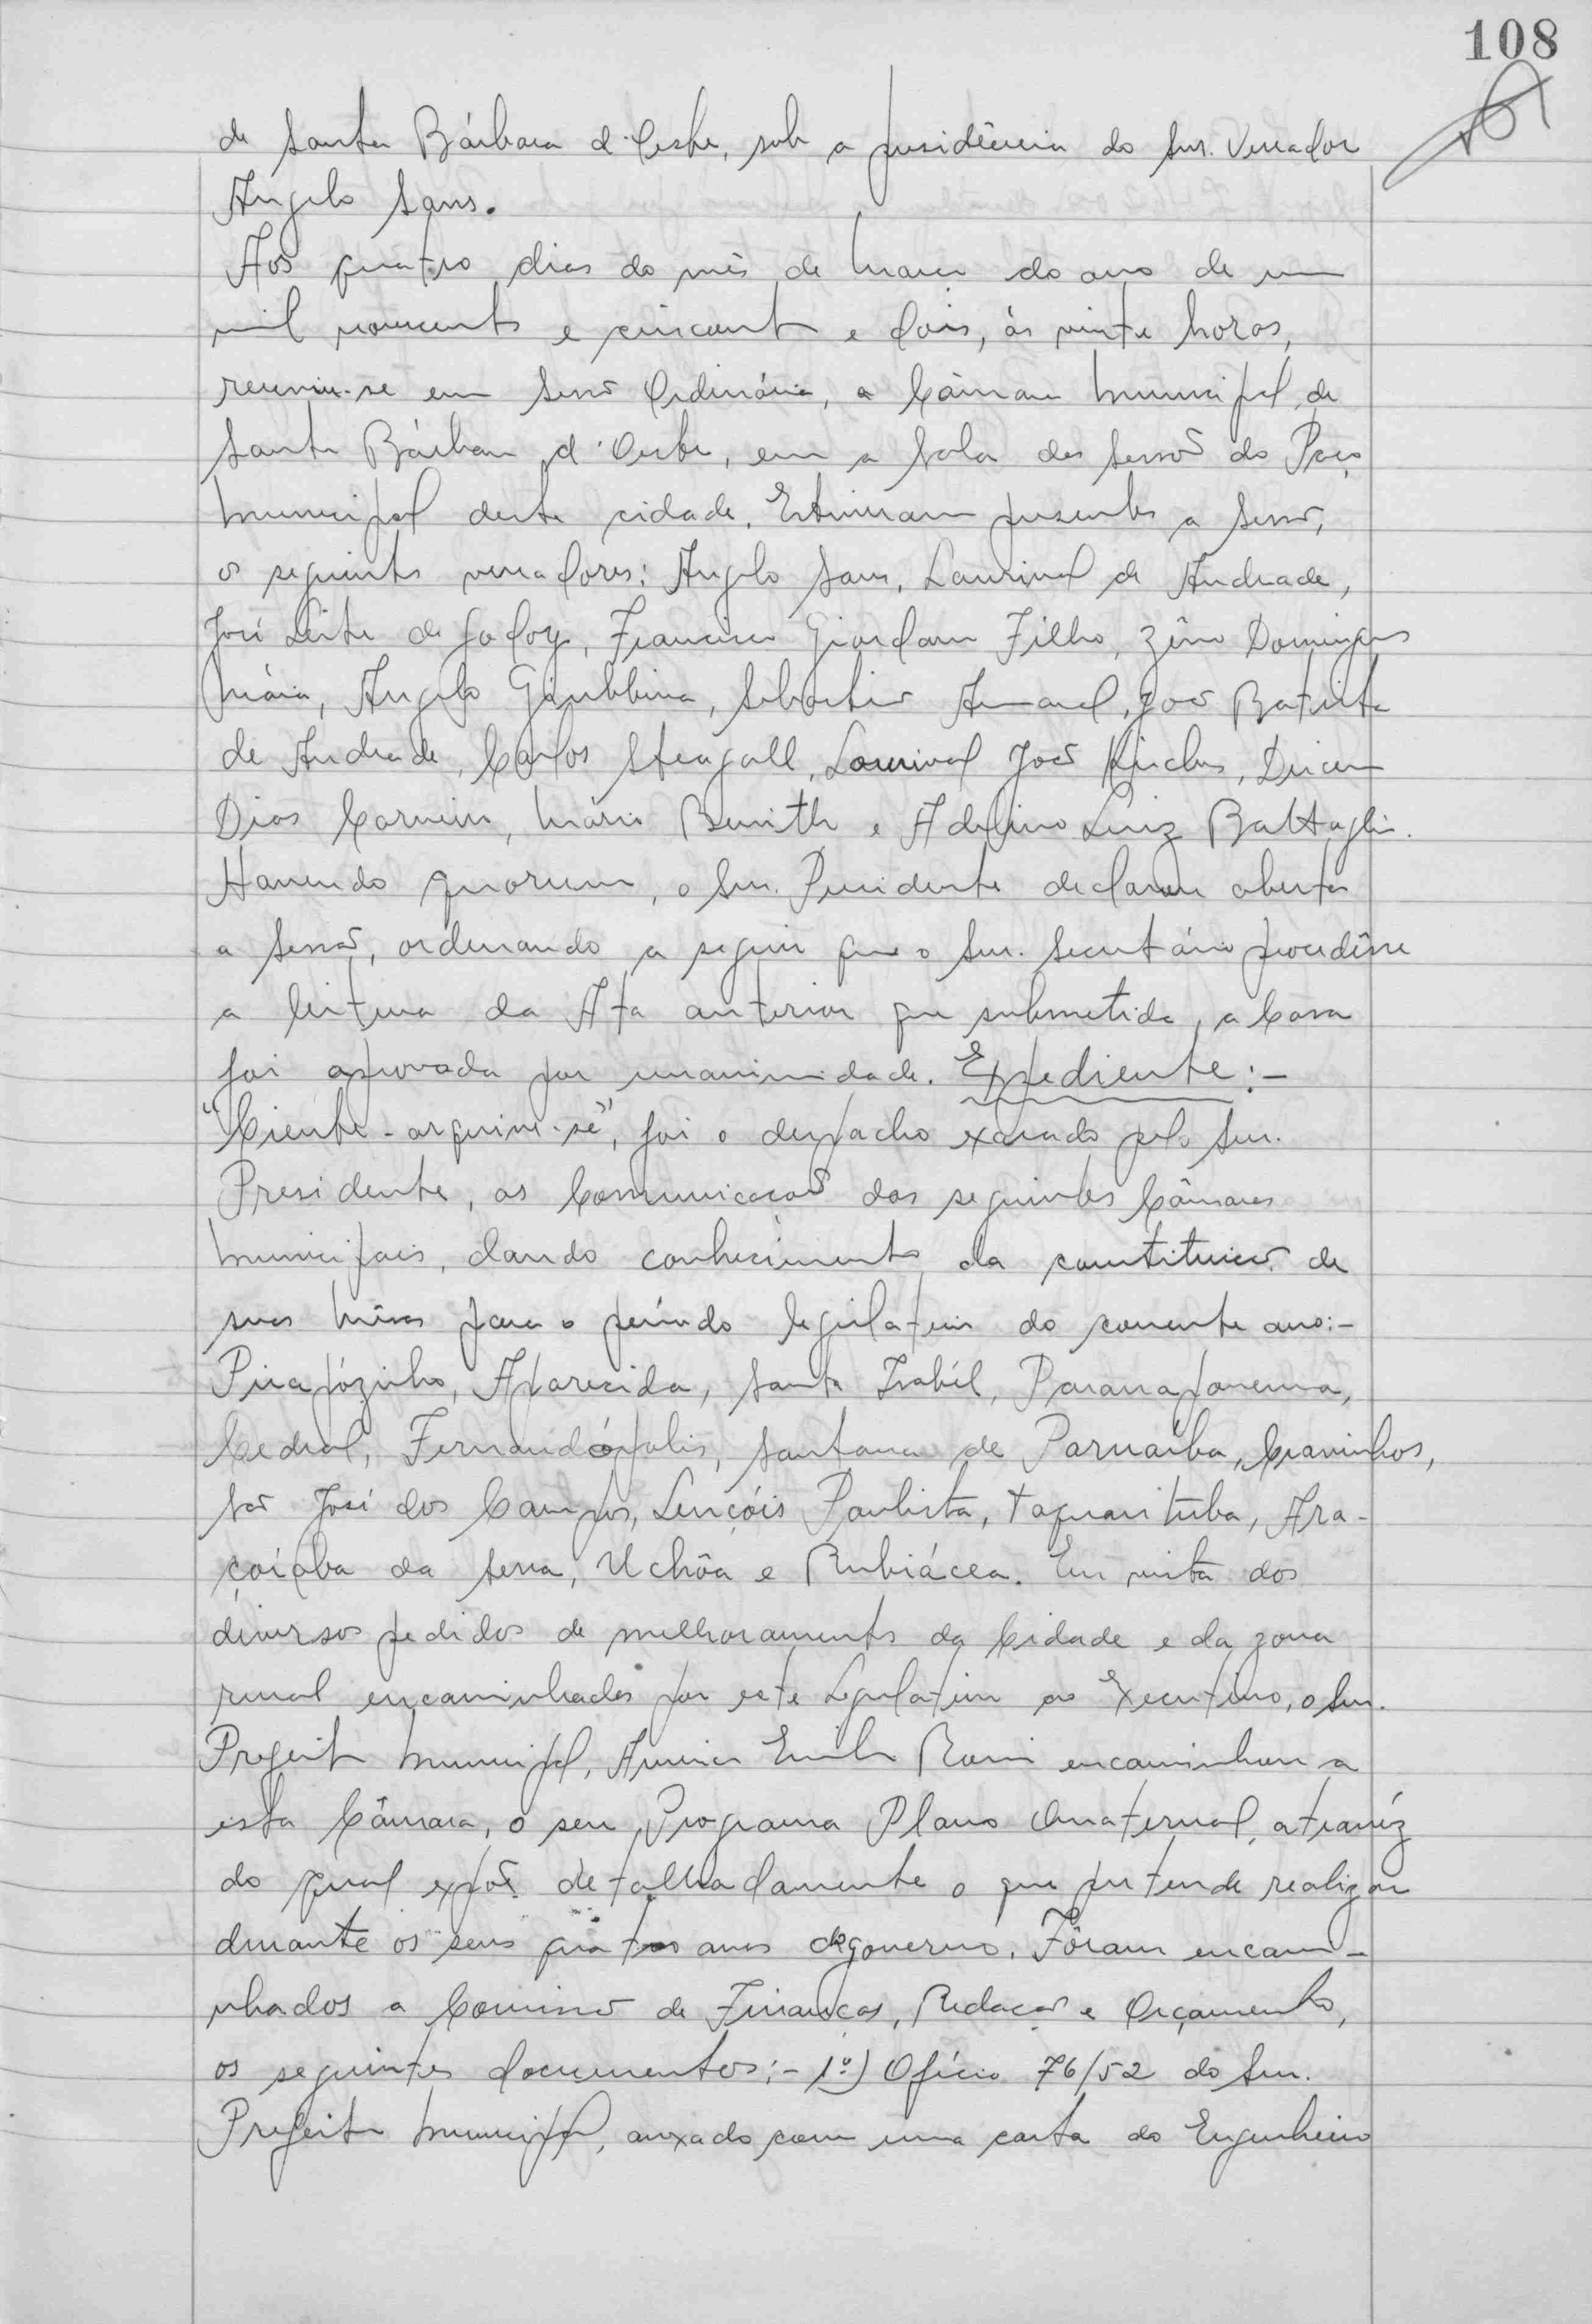 108
de Santa Bárbara d'Oeste, sob a presidência do Snr. Vereador
Angelo Sans.
Aos quatro dias do mês de Março do ano de um
mil novecentos e cincoenta e dois, às vinte horas,
reuniu-se em Sessão Ordinária, a Câmara Municipal de
Santa Bárbara d'Oeste, em a Sala das Sessões do Paço
Municipal desta cidade. Estiveram presentes a Sessão,
os seguintes vereadores: Angelo Sans, Laurival de Andrade,
José Leite de Godoy, Francisco Giordano Filho, Zêno Domingues
Maia, Angelo Giubbina, Sebastião Amaral, João Batista
de Andrade, Carlos Steagall, Lourival João, Dirceu
Dias Carneiro, Mário e Adelino Luiz Battaglia.
Havendo quorum, o Snr. Presidente declarou aberta
a Sessão, ordenando a seguir que o Snr. Secretário procedêsse
a leitura da Ata anterior que submetida, a Casa
foi aprovada por unanimidade. Expediente:-
"Ciente-arquive-se", foi o despacho exarado pelo Snr.
Presidente, as Comunicações das seguintes Câmaras
Municipais, dando conhecimento da constituição de
suas Mêsas para o período legislativo do corrente ano:-
Pirapózinho, Aparecida, Santa Izabél, Paranapanema,
Cedral, Fernandópolis, Santana de Parnaíba, Cravinhos,
São José dos Campos, Lençóis Paulista, Taquarituba, Ara-
çoiaba da Serra, Uchôa e Rubiácea. Em vista dos
diversos pedidos de melhoramentos da Cidade e da zona
rural encaminhados por este Legislativo ao Executivo, o Snr.
Prefeito Municipal, Emilio encaminhou a
esta Câmara, o seu Programa Plano Quaternal, atravéz
do qual expõe detalhadamente o que pretende realizar
durante os seus quatro anos de governo. Fôram encami-
nhados a Comissão de Finanças, Redação e Orçamento,
os seguintes documentos:- 1º) Ofício 76/52 do Snr.
Prefeito Municipal, anexado com uma carta do Engenheiro